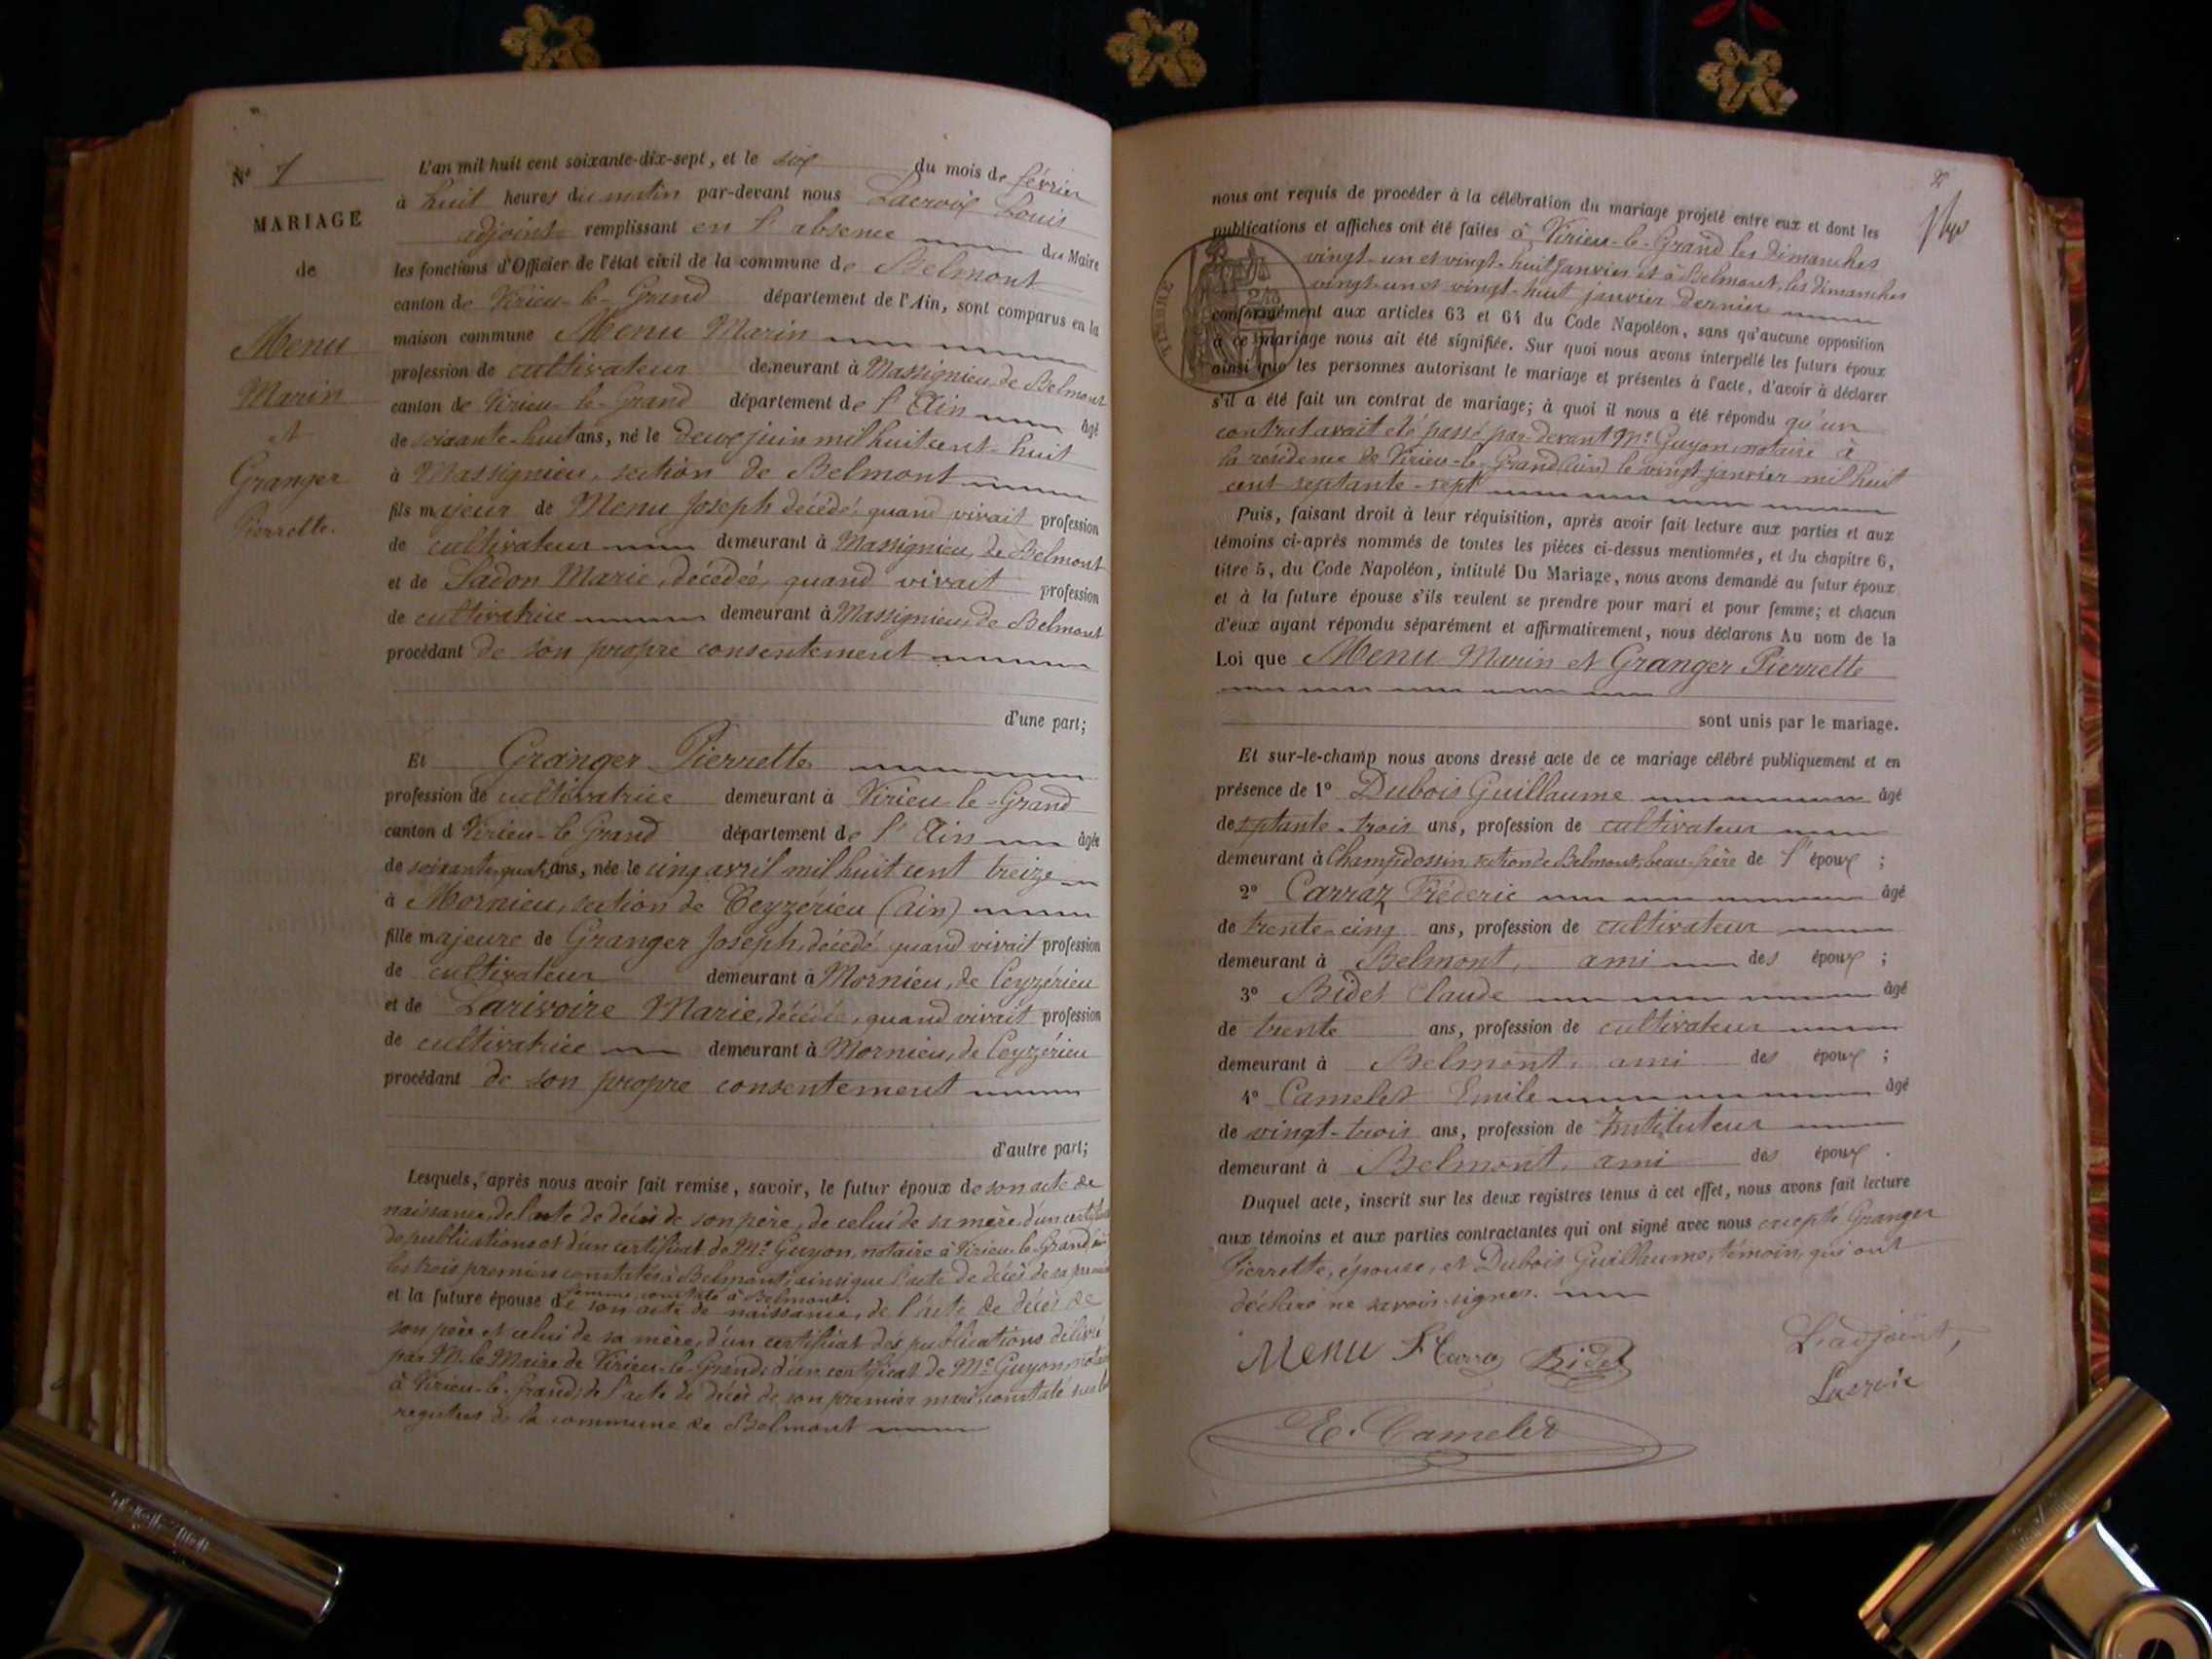 N° 1
MARIAGE
de
Menu
Marin
et
Granger
Pierrette.
L'an mil huit cent soixante-dix-sept, et le six du mois de février
à huit heures du matin par-devant nous Lacroix Louis
adjoint remplissant en l'absence du Maire
les fonctions d'Officier de l'état civil de la commune de Belmont
canton de Virieu-le-Grand département de l'Ain, sont comparus en la
maison commune Menu Marin
profession de cultivateur demeurant à Massignieu, de Belmont
canton de Virieu-le-Grand département de l'Ain âgé
de soixante-huit ans, né le deux juin mil huit cent huit
à Massignieu, section de Belmont
fils majeur de Menu Joseph décédé, quand vivait profession
de cultivateur demeurant à Massignieu, de Belmont
et de Sadon Marie, décédée, quand vivait profession
de cultivatrice demeurant à Massignieu, de Belmont
procédant de son propre consentement
d'une part;
Et Granger Pierrette
profession de cultivatrice demeurant à Virieu-le-Grand
canton d Virieu-le-Grand département de l'Ain âgée
de soixante-quat, ans, née le cinq avril mil huit cent treize
à Mornieu, section de Ceyzérieu (Ain)
fille majeure de Granger Joseph, décédé quand vivait profession
de cultivateur demeurant à Mornieu, de Ceyzérieu
et de Larivoire Marie, décédée, quand vivait profession
de cultivatrice demeurant à Mornieu, de Ceyzérieu
procédant de son propre consentement
d'autre part;
Lesquels, après nous avoir fait remise, savoir, le futur époux de son acte de
naissance, de l'acte de décès de son père, de celui de sa mère, d'un certificat
de publications et d'un certificat de Me Guyon, notaire à Virieu-le-Grand,
les trois premiers constatés à Belmont, ainsi que l'acte de décès de sa première
femme, constaté à Belmont.
et la future épouse de son acte de naissance, de l'acte de décès de
son père et celui de sa mère, d'un certificat des publications délivré
par M. le Maire de Virieu-le-Grand, d'un certificat de Me Guyon, notaire
à Virieu-le-Grand, de l'acte de décès de son premier mari, constaté sur les
registres de la commune de Belmont
2
nous ont requis de procéder à la célébration du mariage projeté entre eux et dont les
publications et affiches ont été faites à Virieu-le-Grand les dimanches
vingt-un et vingt-huit janvier et à Belmont, les dimanches
vingt-un et vingt-huit janvier dernier
TIMBRE
conformément aux articles 63 et 64 du Code Napoléon, sans qu'aucune opposition
à ce mariage nous ait été signifiée. Sur quoi nous avons interpellé les futurs époux
ainsi que les personnes autorisant le mariage et présentes à l'acte, d'avoir à déclarer
s'il a été fait un contrat de mariage; à quoi il nous a été répondu qu'un
contrat avait été passé par-devant Me Guyon, notaire à
la résidence de Virieu-le-Grand (Ain) le vingt janvier mil huit
cent septante-sept
Puis, faisant droit à leur réquisition, après avoir fait lecture aux parties et aux
témoins ci-après nommés de toutes les pièces ci-dessus mentionnées, et du chapitre 6,
titre 5, du Code Napoléon, intitulé Du Mariage, nous avons demandé au futur époux
et à la future épouse s'ils veulent se prendre pour mari et pour femme; et chacun
d'eux ayant répondu séparément et affirmativement, nous déclarons Au nom de la
Loi que Menu Marin et Granger Pierrette
sont unis par le mariage.
Et sur-le-champ nous avons dressé acte de ce mariage célébré publiquement et en
présence de 1° Dubois Guillaume âgé
de septante-trois ans, profession de cultivateur
demeurant à Champdossin section de Belmont, beau-frère de l'époux ;
2° Carraz Fréderic âgé
de trente-cinq ans, profession de cultivateur
demeurant à Belmont, ami des époux ;
3° Bidet Claude âgé
de trente ans, profession de cultivateur
demeurant à Belmont, ami des époux ;
4° Camelet Emile âgé
de vingt-trois ans, profession de Instituteur
demeurant à Belmont, ami des époux.
Duquel acte, inscrit sur les deux registres tenus à cet effet, nous avons fait lecture
aux témoins et aux parties contractantes qui ont signé avec nous excepté Granger
Pierrette, épouse, et Dubois Guillaume, témoin, qui ont
déclaré ne savoir signer.
Menu Bidet L'adjoint,
Lacroix
E. Camelet